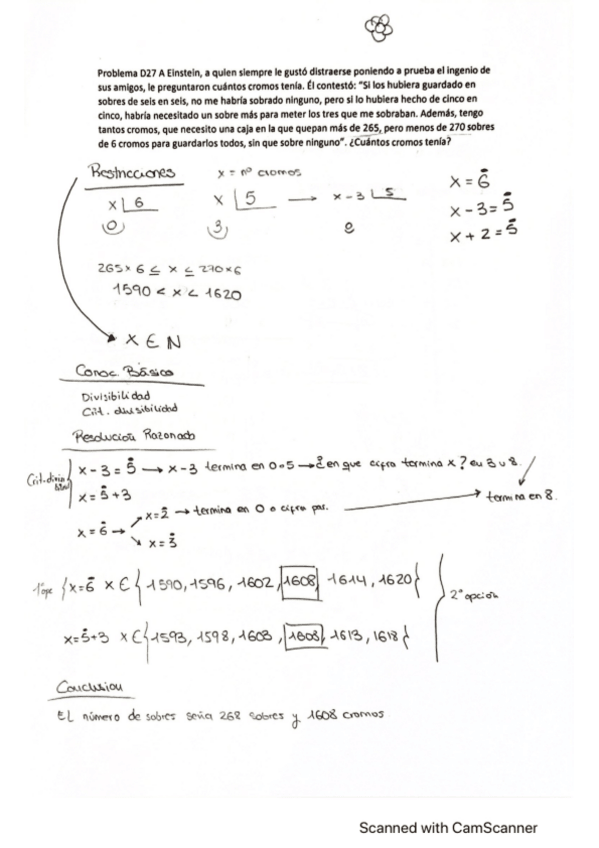 Problema D27 A Einstein, a quien siempre le gustó distraerse poniendo a prueba el ingenio de
sus amigos, le preguntaron cuántos cromos tenía. Él contestó: "Si los hubiera guardado en
sobres de seis en seis, no me habría sobrado ninguno, pero si lo hubiera hecho de cinco en
cinco, habría necesitado un sobre más para meter los tres que me sobraban. Además, tengo
tantos cromos, que necesito una caja en la que quepan más de 265, pero menos de 270 sobres
de 6 cromos para guardarlos todos, sin que sobre ninguno". ¿Cuántos cromos tenía?
Restricciones
x = nº cromos
x 6
0
x 5
3
→ x - 3 5
x = 6̇
x - 3 = 5̇
x + 2 = 5̇
265 × 6 ≤ x ≤ 270 × 6
1590 < x < 1620
x ∈ N
Conoc. Básico
Divisibilidad
Crit. divisibilidad
Resolución Razonada
x - 3 = 5̇ → x - 3 termina en 0 o 5 → ¿en que cifra termina x? en 3 u 8.
x = 5̇ + 3
termina en 8.
x = 6̇ → x = 2̇ → termina en 0 o cifra par.
x = 3̇
x = 6̇ x ∈ {1590, 1596, 1602, 1608, 1614, 1620}
2ª opcion
x = 5̇ + 3 x ∈ {1593, 1598, 1603, 1608, 1613, 1618}
Conclusion
El número de sobres seria 268 sobres y 1608 cromos
Scanned with CamScanner